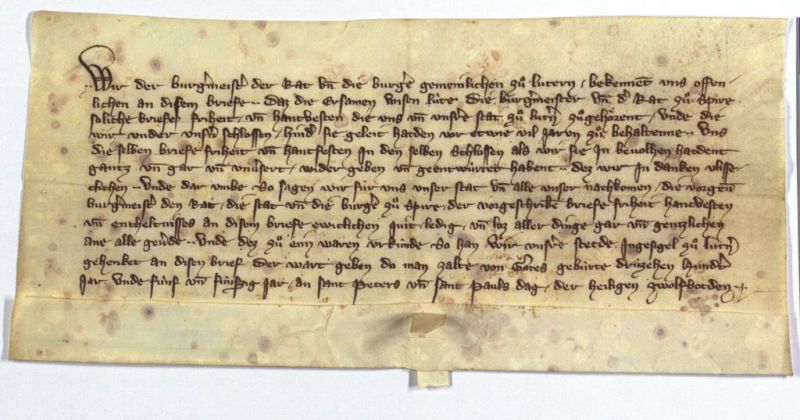 Wir der burg̃meist̃ der Rat vñ die burg̃e gemeinlichen zů lutern / bekennẽt vns offen-
lichen an disem briefe ·· daz die Ersamen wisen lúte Die burgmeister vñ d̃ Rat zů Spire
soliche briefe friheit / vñ hantvesten die vns vñ vnsr̃e stat zů lut̃n zůgehörent / vnde die
wir vnder vnsrn̄ schlossen / hind̃ sie geleit hatden vor etwie vil Jaren zů behaltenne ·· vns
die selben briefe friheit vñ hantfesten in den selben schlossen als wir sie in bevolhen hatdent
gantz vñ gar vñ vnusert / wider geben vñ geentwúrtet habent ·· dez wir in danken vlisse-
clichen ·· vnde dar vmbe So sagen wir fúr vns vnser stat vñ alle vnser nachkomen / die vorgen̄
burg̃meist̃ den Rat / die stat vñ die burg̃e zů Spire / der vorgeschribẽ briefe friheit hantvesten
vñ entheltnisses an disem briefe ewiclichen quit ledig / vñ loz aller dinge gar vñ gentzlichen
ane alle geúde ·· vnde dez zů eim waren vrkúnde So han wir vnsr̃e stette Ingesigel zů lut̃n
gehenket an disen brief Der wart geben do man zalte von Gottes gebúrte drúzehen hundr̃t
Jar vnde fúnf vñ fúnfzig jar / an sant Peters vñ sant Pauls dag / der heiligen zwolfbotden ··